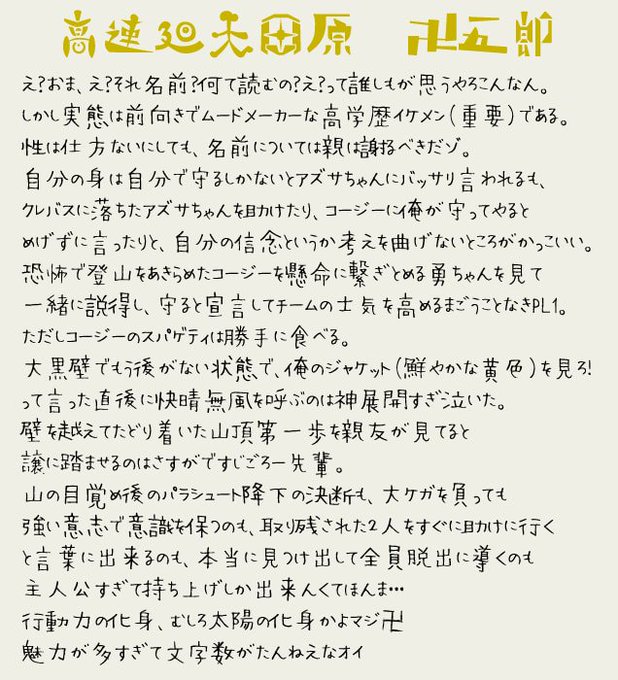 高連廻天田原　卍五郎
え?おま、え?それ名前?何て読むの?え?って誰しもが思うやろこんなん。
しかし実態は前向きでムードメーカーな高学歴イケメン(重要)である。
性は仕方ないにしても、名前については親は謝るべきだゾ。
自分の身は自分で守るしかないとアズサちゃんにバッサリ言われるも、
クレバスに落ちたアズサちゃんを助けたり、コージーに俺が守ってやると
めげずに言ったりと、自分の信念というか考えを曲げないところがかっこいい。
恐怖で登山をあきらめたコージーを懸命に繋ぎとめる勇ちゃんを見て
一緒に説得し、守ると宣言してチームの士気を高めるまごうことなきPL1。
ただしコージーのスパゲティは勝手に食べる。
大黒壁でもう後がない状態で、俺のジャケット(鮮やかな黄色)を見ろ!
って言った直後に快晴無風を呼ぶのは神展開すぎ泣いた。
壁を越えてたどり着いた山頂第一歩を親友が見てると
譲に踏ませるのはさすがですじごろー先輩。
山の目覚め後のパラシュート降下の決断も、大ケガを負っても
強い意志で意識を保つのも、取り残された2人をすぐに助けに行く
と言葉に出来るのも、本当に見つけ出して全員脱出に導くのも
主人公すぎて持ち上げしか出来んくてほんま…
行動力の化身、むしろ太陽の化身かよマジ卍
魅力が多すぎて文字数がたんねえなオイ